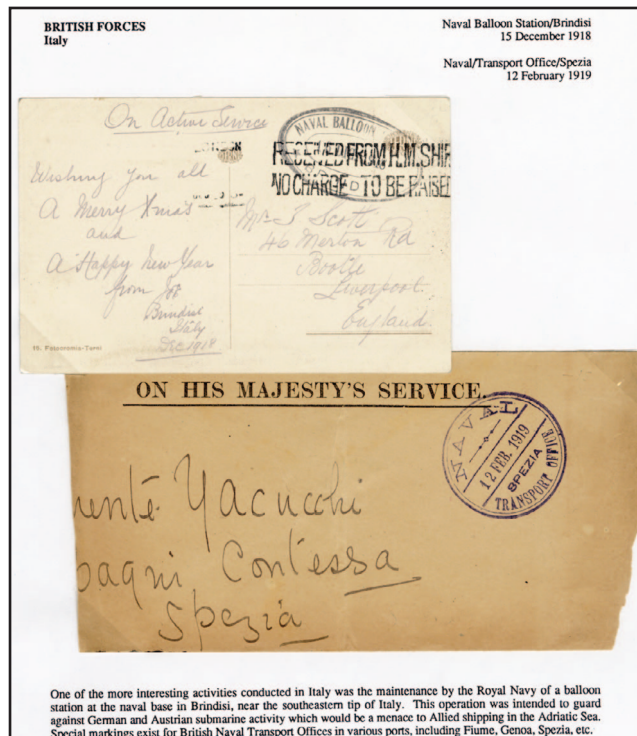 BRITISH FORCES
Italy
Naval Balloon Station/Brindisi
15 December 1918
Naval/Transport Office/Spezia
12 February 1919
On Active Service
NAVAL BALLOON
RECEIVED FROM H.M. SHIP
NO CHARGE TO BE RAISED
Wishing you all
A Merry Xmas
and
A Happy New Year
from Joe
Brindisi
Italy
Dec 1918
Scott
46 Merton Rd
Bootle
Liverpool.
England.
ON HIS MAJESTY'S SERVICE.
NAVAL
12 FEB. 1919
SPEZIA
TRANSPORT OFFICE
Yacucchi
Contessa
Spezia
One of the more interesting activities conducted in Italy was the maintenance by the Royal Navy of a balloon
station at the naval base in Brindisi, near the southeastern tip of Italy. This operation was intended to guard
against German and Austrian submarine activity which would be a menace to Allied shipping in the Adriatic Sea.
Special markings exist for British Naval Transport Offices in various ports, including Fiume, Genoa, Spezia, etc.